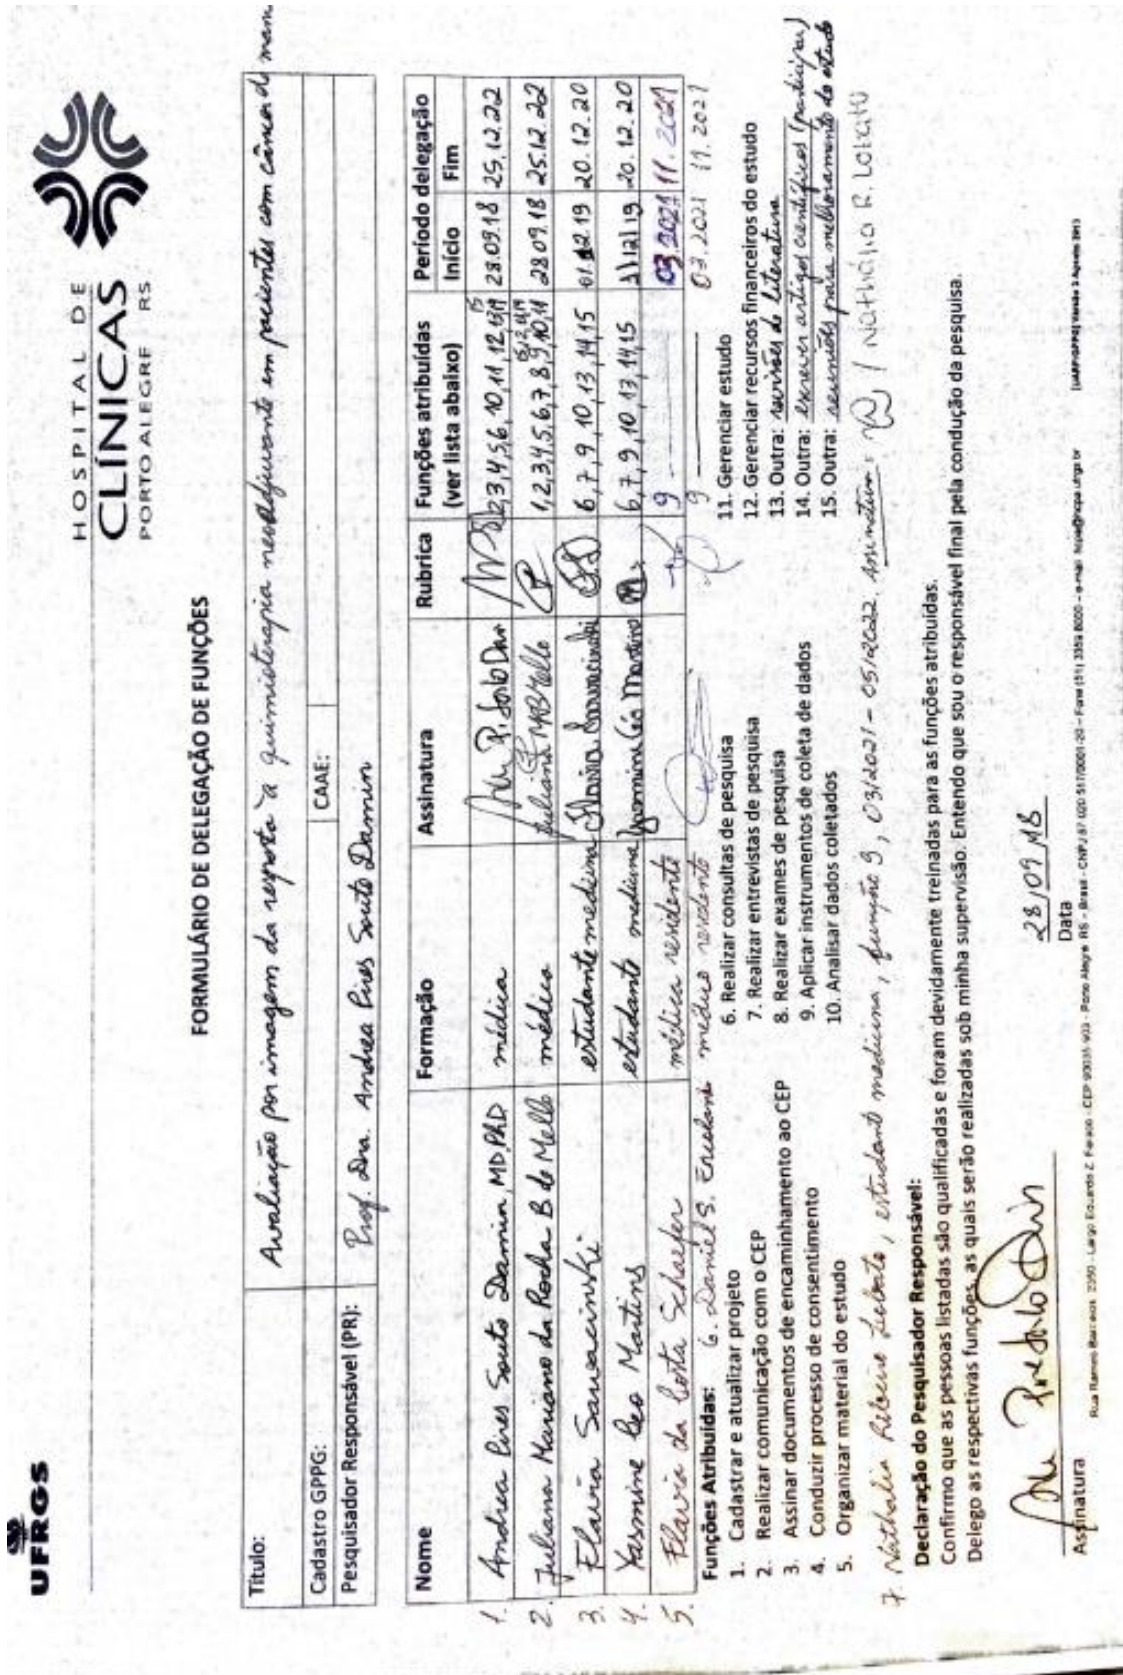 UFRGS
HOSPITAL DE
CLÍNICAS
PORTO ALEGRE RS
FORMULÁRIO DE DELEGAÇÃO DE FUNÇÕES
Título: Avaliação por imagem da resposta à quimioterapia neoadjuvante em pacientes com câncer de mam
Cadastro GPPG: CAAE:
Pesquisador Responsável (PR): Prof. Dra. Andrea Pires Souto Damin
Nome Formação Assinatura Rubrica Funções atribuídas (ver lista abaixo) Período delegação Início Fim
1. Andrea Pires Souto Damin, MD, PhD médica 2,3,4,5,6,10,11,12,13,14 15 28.09.18 25.12.22
2. Juliana Mariano da Rocha B de Mello médica 1,2,3,4,5,6,7,8,9,10,11 28.09.18 25.12.22
3. Flavia estudante medicina 6,7,9,10,13,14,15 01.12.19 20.12.20
4. Yasmine Ceo Martins estudante medicina 6,7,9,10,13,14,15 20.12.20
5. Flavia da Costa Schaefer médica residente 9 03.2021 11.2021
6. Daniel S. médico residente 9 03.2021 11.2021
Funções Atribuídas:
1. Cadastrar e atualizar projeto
2. Realizar comunicação com o CEP
3. Assinar documentos de encaminhamento ao CEP
4. Conduzir processo de consentimento
5. Organizar material do estudo
6. Realizar consultas de pesquisa
7. Realizar entrevistas de pesquisa
8. Realizar exames de pesquisa
9. Aplicar instrumentos de coleta de dados
10. Analisar dados coletados
11. Gerenciar estudo
12. Gerenciar recursos financeiros do estudo
13. Outra: revisões de literatura
14. Outra: escrever artigos científicos (participar)
15. Outra: reuniões para melhoramento do estudo
7. Nathalia Ribeiro Lobato, estudante medicina, função 9, 03/2021 - 05/2022. assinatura: / Nathalia R. Lobato
Declaração do Pesquisador Responsável:
Confirmo que as pessoas listadas são qualificadas e foram devidamente treinadas para as funções atribuídas.
Delego as respectivas funções, as quais serão realizadas sob minha supervisão. Entendo que sou o responsável final pela condução da pesquisa.
28/09/18
Assinatura Data